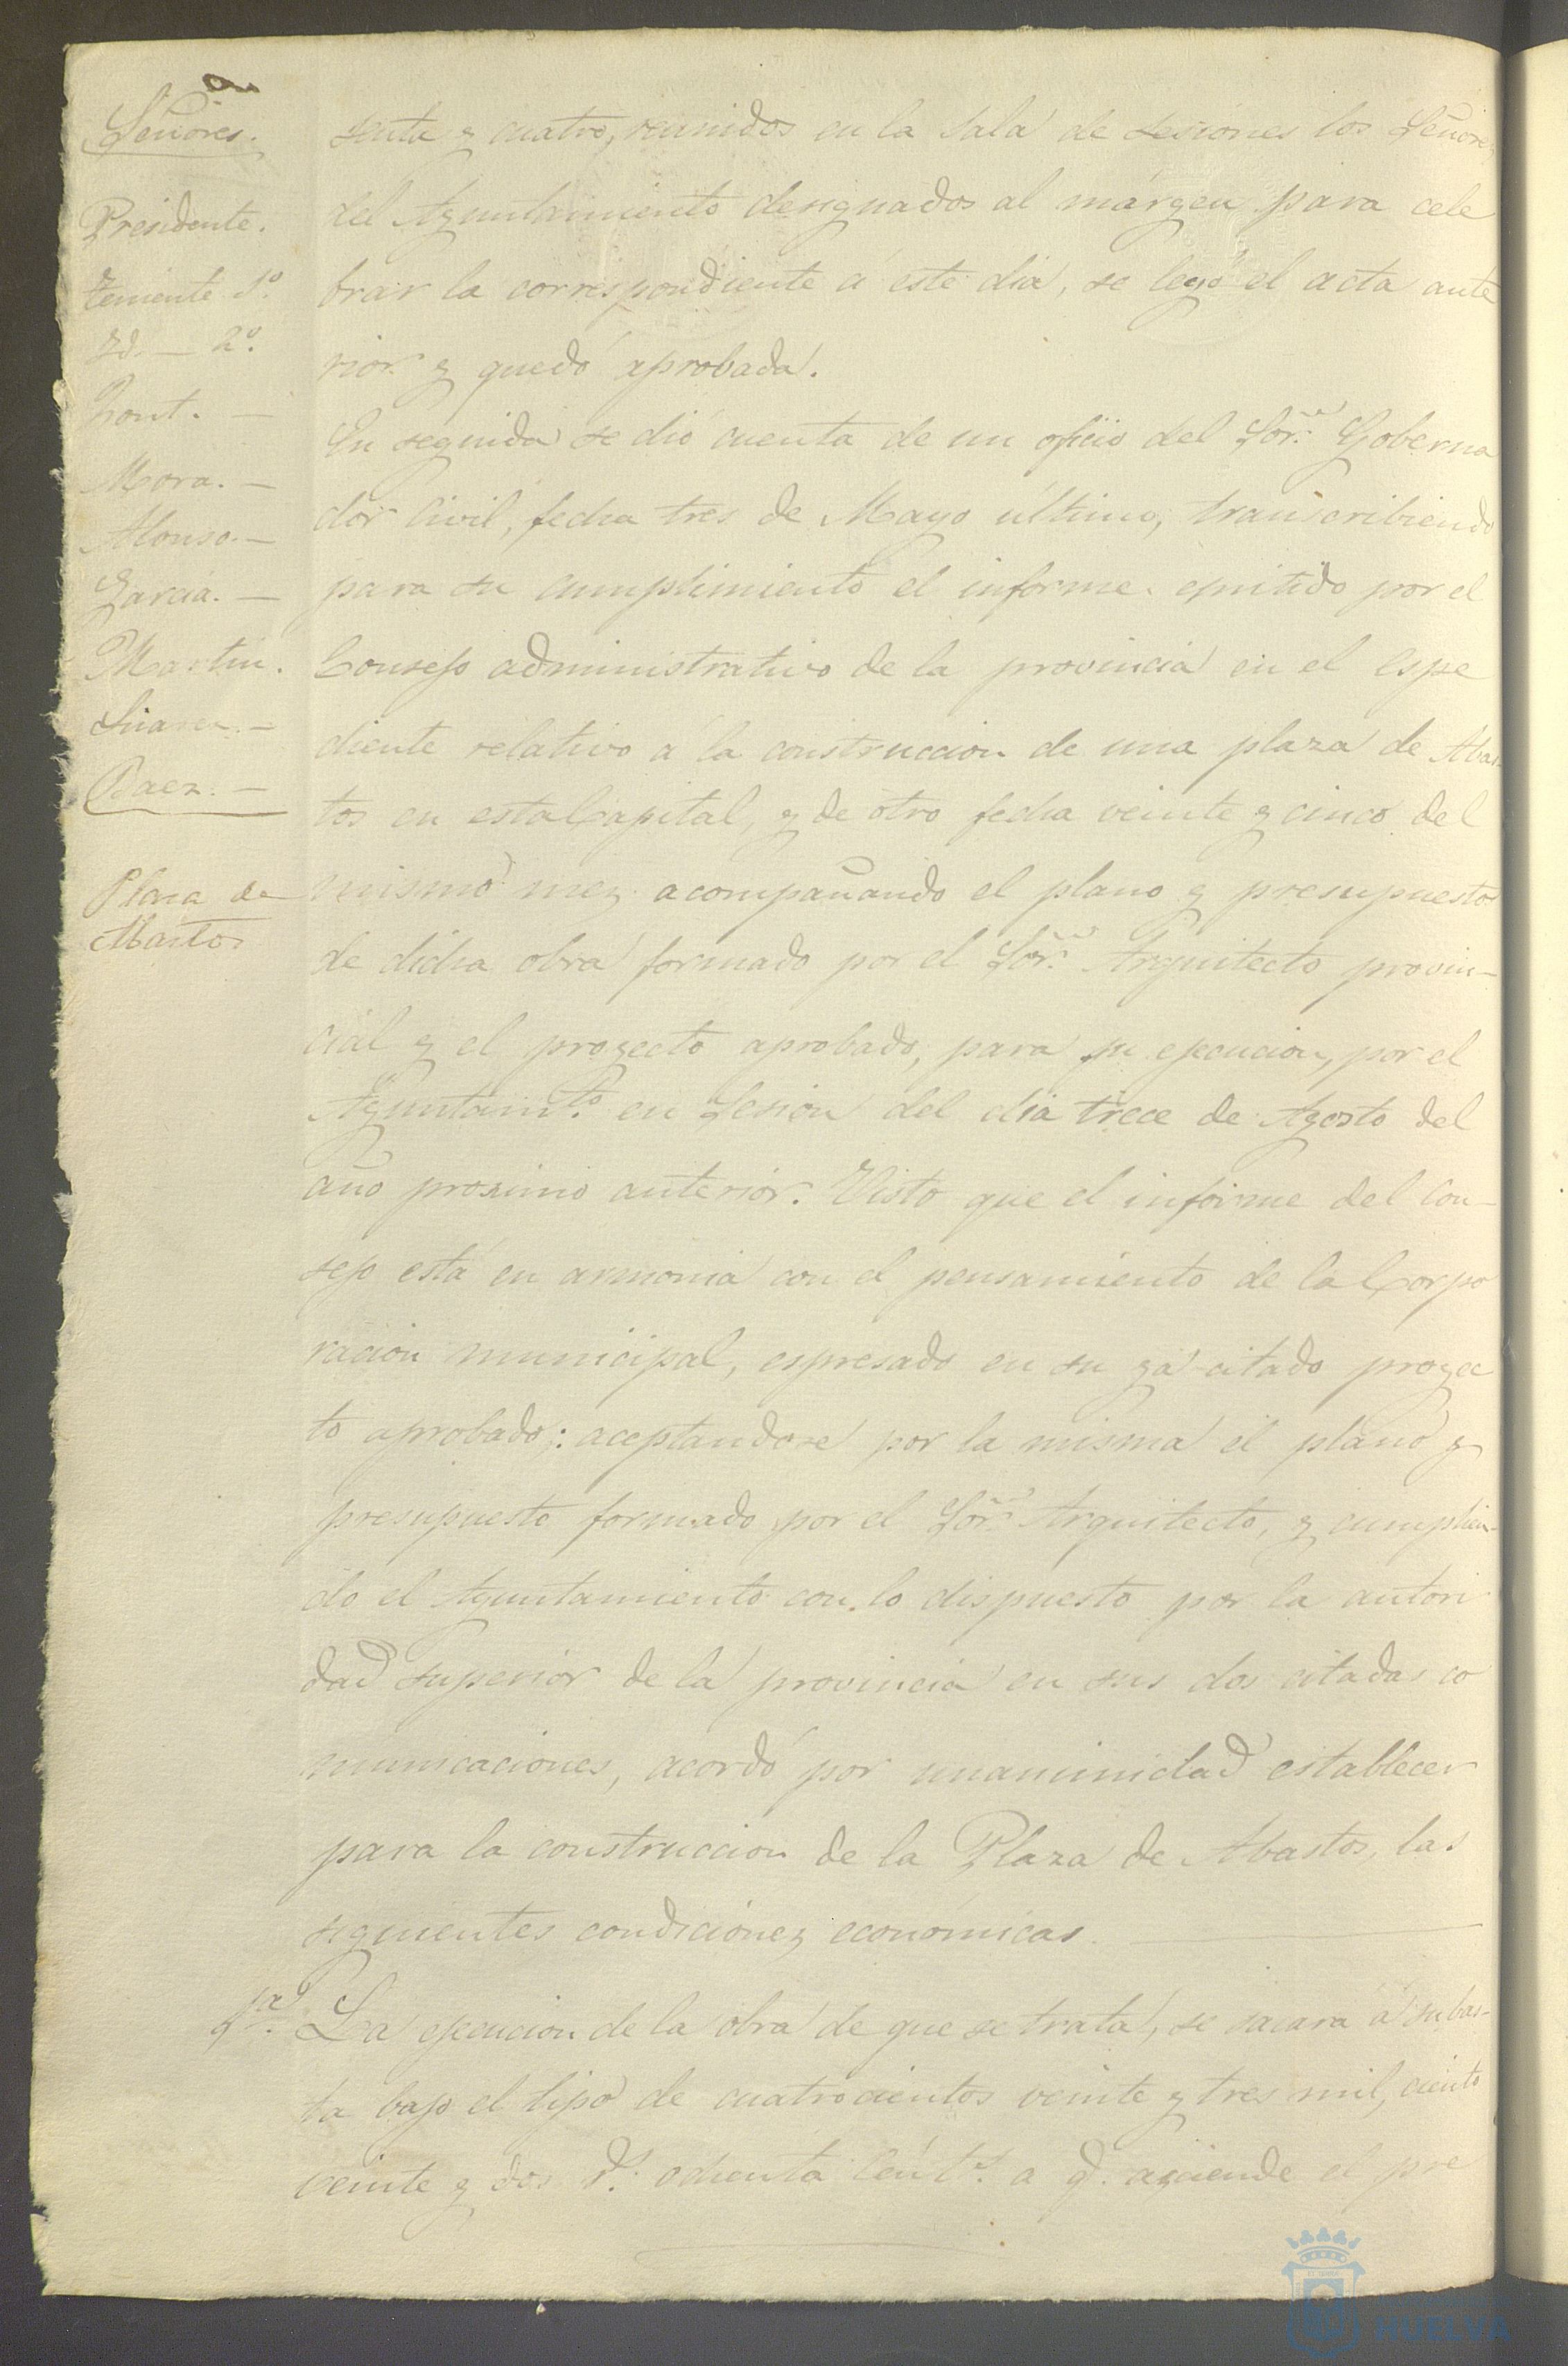 Señores.
Presidente.
Teniente 1º.
Id. — 2º.
Pont. —
Mora. —
Alonso. —
Garcia. —
Martin.
Suarez. —
Baez. —
Plaza de
Abastos
senta y cuatro, reunidos en la Sala de sesiones los Señores
del Ayuntamiento designados al márgen para cele
brar la correspondiente á este dia, se leyó el acta ante
rior y quedó aprobada.
En seguida se dió cuenta de un oficio del Sor. Goberna
dor Civil, fecha tres de Mayo último, transcribiendo
para su cumplimiento el informe emitido por el
Consejo administrativo de la provincia en el espe
diente relativo á la construccion de una plaza de Abas
tos en esta Capital, y de otro fecha veinte y cinco del
mismo mes acompañando el plano y presupuesto
de dicha obra formado por el Sor. Arquitecto provin-
cial y el proyecto aprobado, para su ejecucion, por el
Ayuntamto. en Sesion del dia trece de Agosto del
año proximo anterior. Visto que el informe del Con-
sejo está en armonia con el pensamiento de la Corpo
racion municipal, espresado en su ya citado proyec
to aprobado: aceptandose por la misma el plano y
presupuesto formado por el Sor. Arquitecto, y cumplien-
do el Ayuntamiento con lo dispuesto por la autori
dad superior de la provincia en sus dos citadas co
municaciones, acordó por unanimidad establecer
para la construccion de la Plaza de Abastos, las
siguientes condiciones economicas.
1ª. La ejecucion de la obra de que se trata, se sacara á subas-
ta bajo el tipo de cuatrocientos veinte y tres mil, ciento
veinte y dos rs. ochenta cénts. a q. asciende el pre
HUELVA